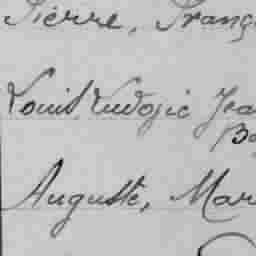 Pierre, Franç
Louis Ludovic Jea
Ba
Auguste, Mar